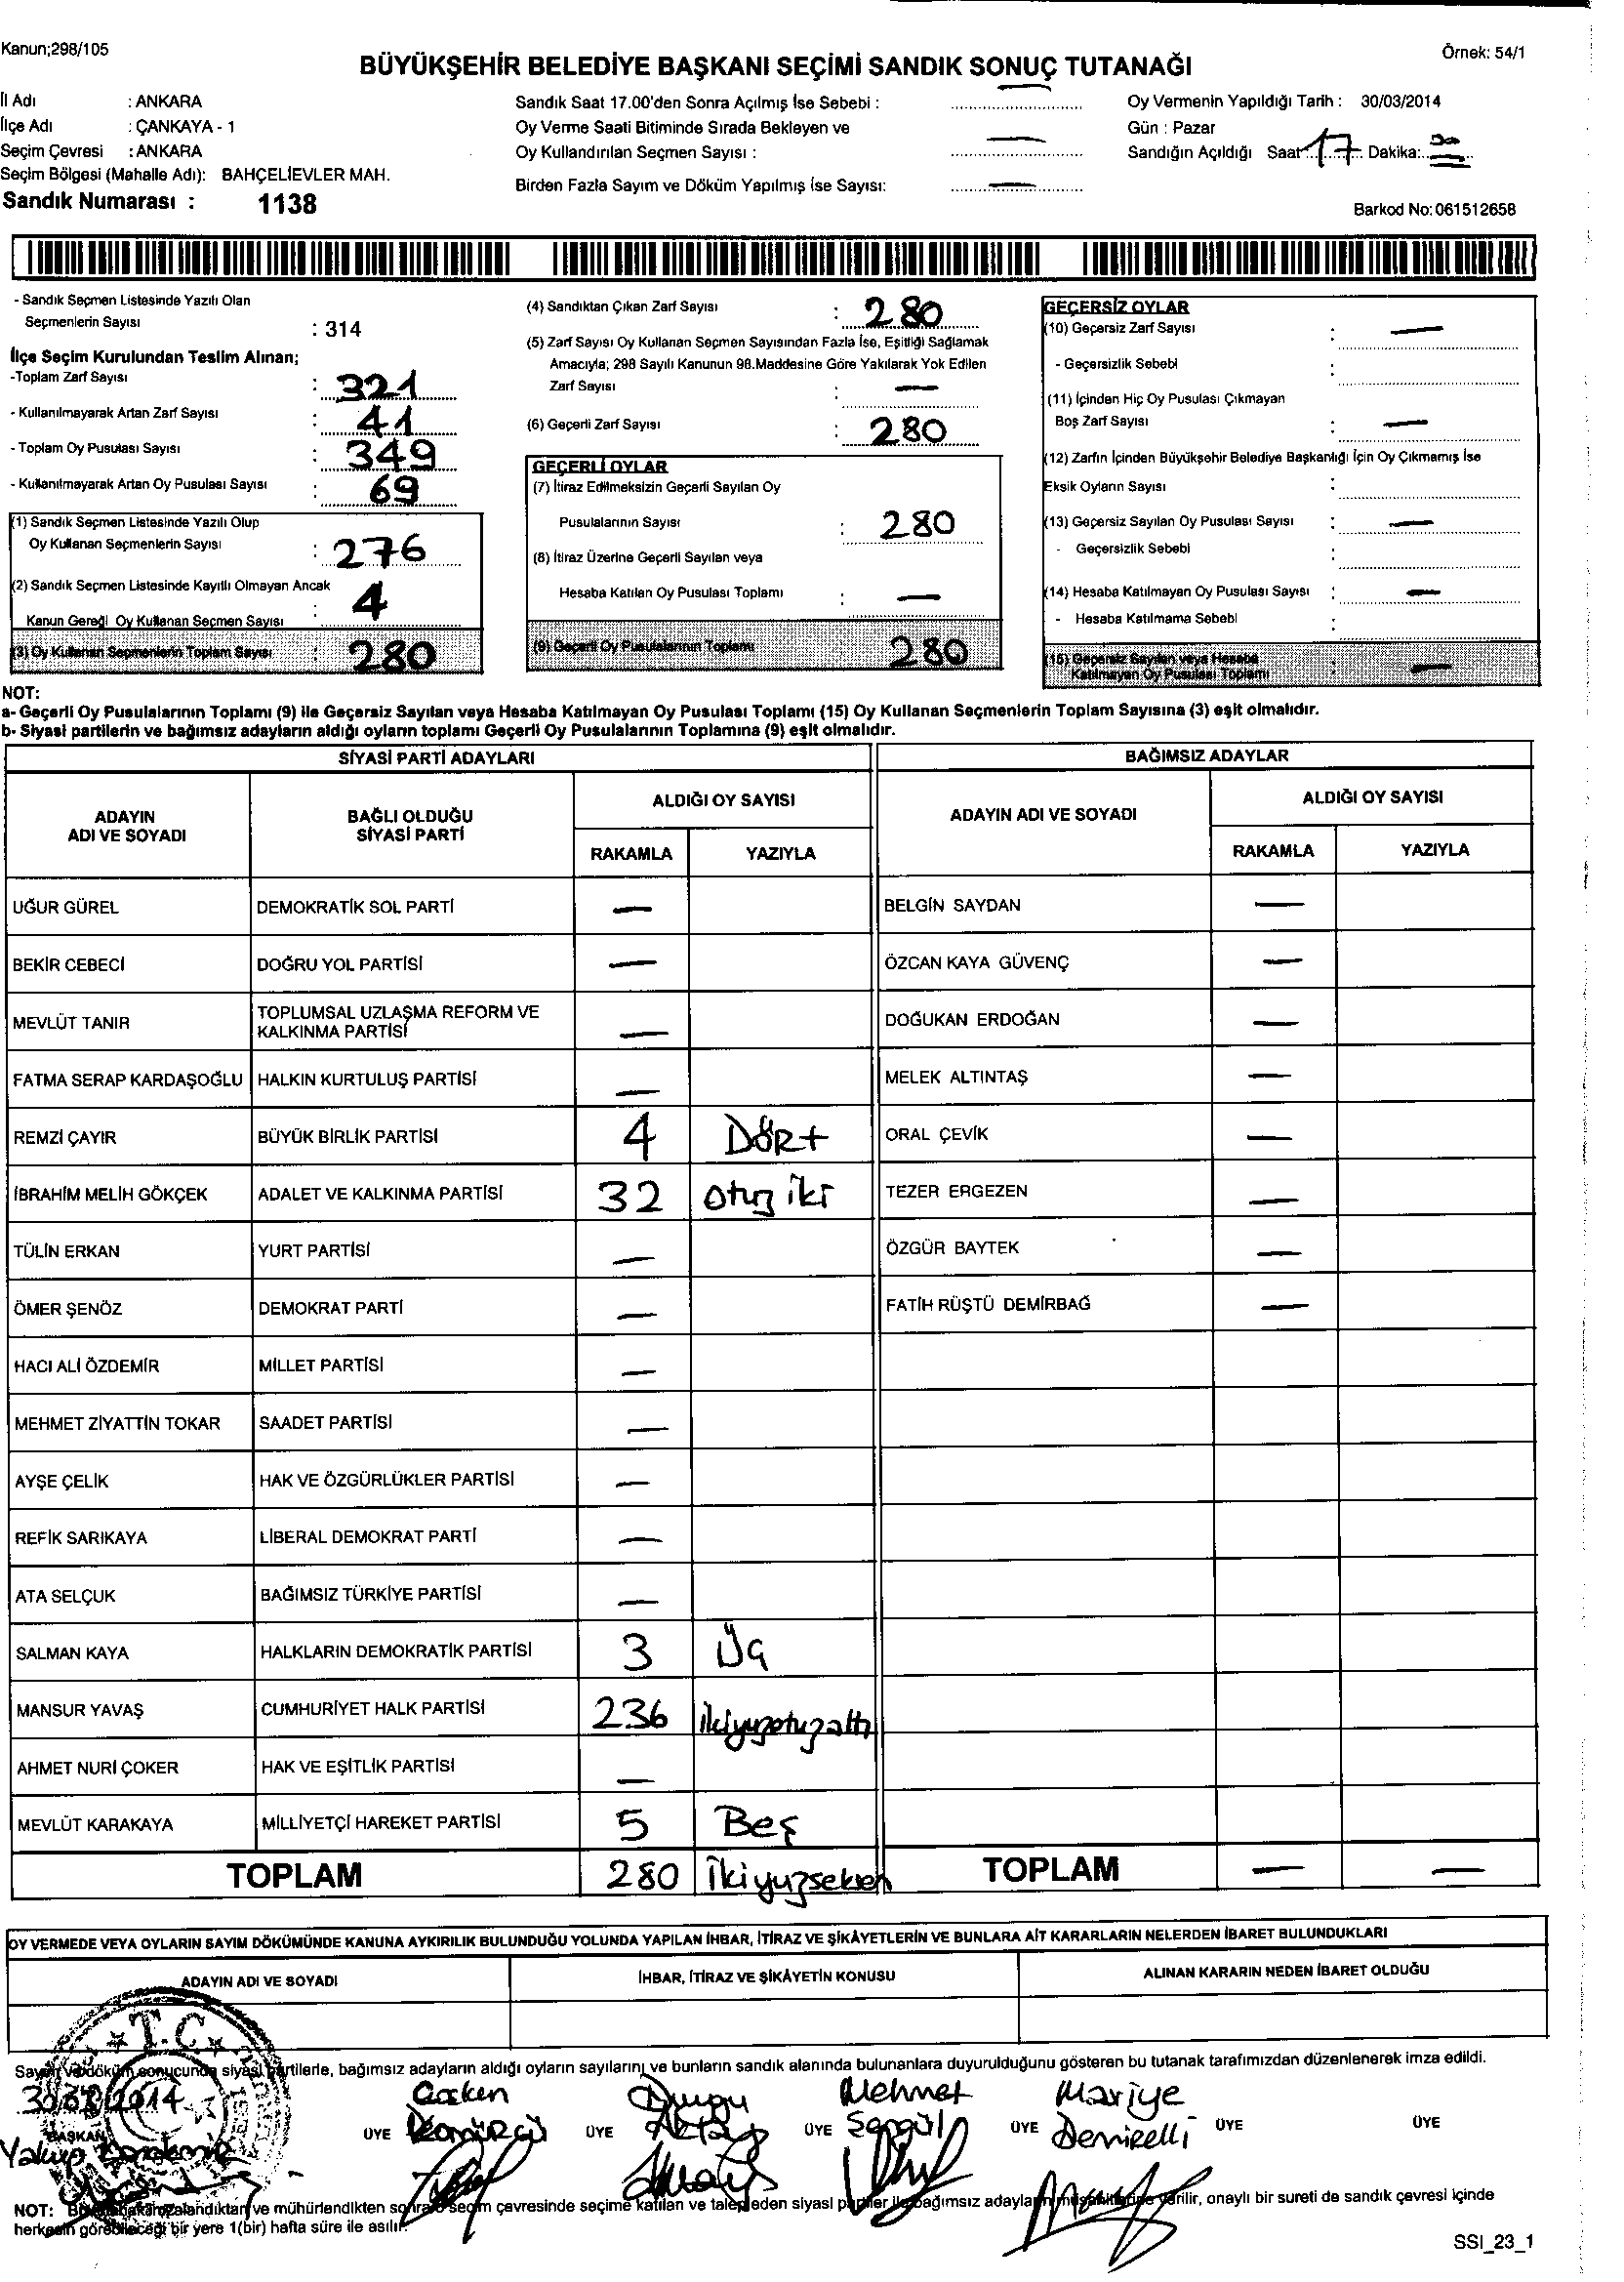 Kanun;298/105
Örnek: 54/1
BÜYÜKŞEHİR BELEDİYE BAŞKANI SEÇİMİ SANDIK SONUÇ TUTANAĞI
İl Adı : ANKARA
İlçe Adı : ÇANKAYA - 1
Seçim Çevresi : ANKARA
Seçim Bölgesi (Mahalle Adı): BAHÇELİEVLER MAH.
Sandık Numarası : 1138
Sandık Saat 17.00'den Sonra Açılmış İse Sebebi : —
Oy Verme Saati Bitiminde Sırada Bekleyen ve
Oy Kullandırılan Seçmen Sayısı : —
Birden Fazla Sayım ve Döküm Yapılmış İse Sayısı: —
Oy Vermenin Yapıldığı Tarih : 30/03/2014
Gün : Pazar
Sandığın Açıldığı Saat 17 Dakika: 00
Barkod No: 061512658
- Sandık Seçmen Listesinde Yazılı Olan
Seçmenlerin Sayısı : 314
İlçe Seçim Kurulundan Teslim Alınan;
-Toplam Zarf Sayısı : 321
- Kullanılmayarak Artan Zarf Sayısı : 41
- Toplam Oy Pusulası Sayısı : 349
- Kullanılmayarak Artan Oy Pusulası Sayısı : 69
(1) Sandık Seçmen Listesinde Yazılı Olup
Oy Kullanan Seçmenlerin Sayısı : 276
(2) Sandık Seçmen Listesinde Kayıtlı Olmayan Ancak
Kanun Gereği Oy Kullanan Seçmen Sayısı : 4
(3) Oy Kullanan Seçmenlerin Toplam Sayısı : 280
(4) Sandıktan Çıkan Zarf Sayısı : 280
(5) Zarf Sayısı Oy Kullanan Seçmen Sayısından Fazla İse, Eşitliği Sağlamak
Amacıyla; 298 Sayılı Kanunun 98.Maddesine Göre Yakılarak Yok Edilen
Zarf Sayısı : —
(6) Geçerli Zarf Sayısı : 280
GEÇERLİ OYLAR
(7) İtiraz Edilmeksizin Geçerli Sayılan Oy
Pusulalarının Sayısı : 280
(8) İtiraz Üzerine Geçerli Sayılan veya
Hesaba Katılan Oy Pusulası Toplamı : —
(9) Geçerli Oy Pusulalarının Toplamı 280
GEÇERSİZ OYLAR
(10) Geçersiz Zarf Sayısı : —
- Geçersizlik Sebebi :
(11) İçinden Hiç Oy Pusulası Çıkmayan
Boş Zarf Sayısı : —
(12) Zarfın İçinden Büyükşehir Belediye Başkanlığı İçin Oy Çıkmamış İse
Eksik Oyların Sayısı :
(13) Geçersiz Sayılan Oy Pusulası Sayısı : —
- Geçersizlik Sebebi :
(14) Hesaba Katılmayan Oy Pusulası Sayısı : —
- Hesaba Katılmama Sebebi :
(15) Geçersiz Sayılan veya Hesaba
Katılmayan Oy Pusulası Toplamı : —
NOT:
a- Geçerli Oy Pusulalarının Toplamı (9) ile Geçersiz Sayılan veya Hesaba Katılmayan Oy Pusulası Toplamı (15) Oy Kullanan Seçmenlerin Toplam Sayısına (3) eşit olmalıdır.
b- Siyasi partilerin ve bağımsız adayların aldığı oyların toplamı Geçerli Oy Pusulalarının Toplamına (9) eşit olmalıdır.
SİYASİ PARTİ ADAYLARI
ADAYIN
ADI VE SOYADI
BAĞLI OLDUĞU
SİYASİ PARTİ
ALDIĞI OY SAYISI
RAKAMLA YAZIYLA
UĞUR GÜREL DEMOKRATİK SOL PARTİ —
BEKİR CEBECİ DOĞRU YOL PARTİSİ —
MEVLÜT TANIR TOPLUMSAL UZLAŞMA REFORM VE
KALKINMA PARTİSİ —
FATMA SERAP KARDAŞOĞLU HALKIN KURTULUŞ PARTİSİ —
REMZİ ÇAYIR BÜYÜK BİRLİK PARTİSİ 4 Dört
İBRAHİM MELİH GÖKÇEK ADALET VE KALKINMA PARTİSİ 32 otuz iki
TÜLİN ERKAN YURT PARTİSİ —
ÖMER ŞENÖZ DEMOKRAT PARTİ —
HACI ALİ ÖZDEMİR MİLLET PARTİSİ —
MEHMET ZİYATTİN TOKAR SAADET PARTİSİ —
AYŞE ÇELİK HAK VE ÖZGÜRLÜKLER PARTİSİ —
REFİK SARIKAYA LİBERAL DEMOKRAT PARTİ —
ATA SELÇUK BAĞIMSIZ TÜRKİYE PARTİSİ —
SALMAN KAYA HALKLARIN DEMOKRATİK PARTİSİ 3 Üç
MANSUR YAVAŞ CUMHURİYET HALK PARTİSİ 236 ikiyüzotuzaltı
AHMET NURİ ÇOKER HAK VE EŞİTLİK PARTİSİ —
MEVLÜT KARAKAYA MİLLİYETÇİ HAREKET PARTİSİ 5 Beş
TOPLAM 280 İkiyuzseksen
BAĞIMSIZ ADAYLAR
ADAYIN ADI VE SOYADI
ALDIĞI OY SAYISI
RAKAMLA YAZIYLA
BELGİN SAYDAN —
ÖZCAN KAYA GÜVENÇ —
DOĞUKAN ERDOĞAN —
MELEK ALTINTAŞ —
ORAL ÇEVİK —
TEZER ERGEZEN —
ÖZGÜR BAYTEK —
FATİH RÜŞTÜ DEMİRBAĞ —
TOPLAM — —
OY VERMEDE VEYA OYLARIN SAYIM DÖKÜMÜNDE KANUNA AYKIRILIK BULUNDUĞU YOLUNDA YAPILAN İHBAR, İTİRAZ VE ŞİKÂYETLERİN VE BUNLARA AİT KARARLARIN NELERDEN İBARET BULUNDUKLARI
ADAYIN ADI VE SOYADI İHBAR, İTİRAZ VE ŞİKÂYETİN KONUSU ALINAN KARARIN NEDEN İBARET OLDUĞU
T.C.
Sayım ve döküm sonucunda siyasi partilerle, bağımsız adayların aldığı oyların sayılarını ve bunların sandık alanında bulunanlara duyurulduğunu gösteren bu tutanak tarafımızdan düzenlenerek imza edildi.
30/03/2014
BAŞKAN
Yakup
ÜYE
ÜYE Duygu
ÜYE Mehmet Şengül
ÜYE Mariye Demirelli
ÜYE
ÜYE
NOT: imzalandıktan ve mühürlendikten sonra seçim çevresinde seçime katılan ve talep eden siyasi partiler ile bağımsız adayların müşahitlerine verilir, onaylı bir sureti de sandık çevresi içinde
herkesin görebileceği bir yere 1(bir) hafta süre ile asılır.
SSI_23_1